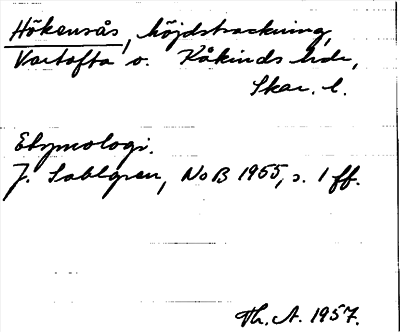 Hökensås, höjdsträckning,
Vartofta o. Kåkinds hdr,
Skar. l.
Etymologi.
J. Sahlgren, NoB 1955, s. 1 ff.
Th. A. 1957.